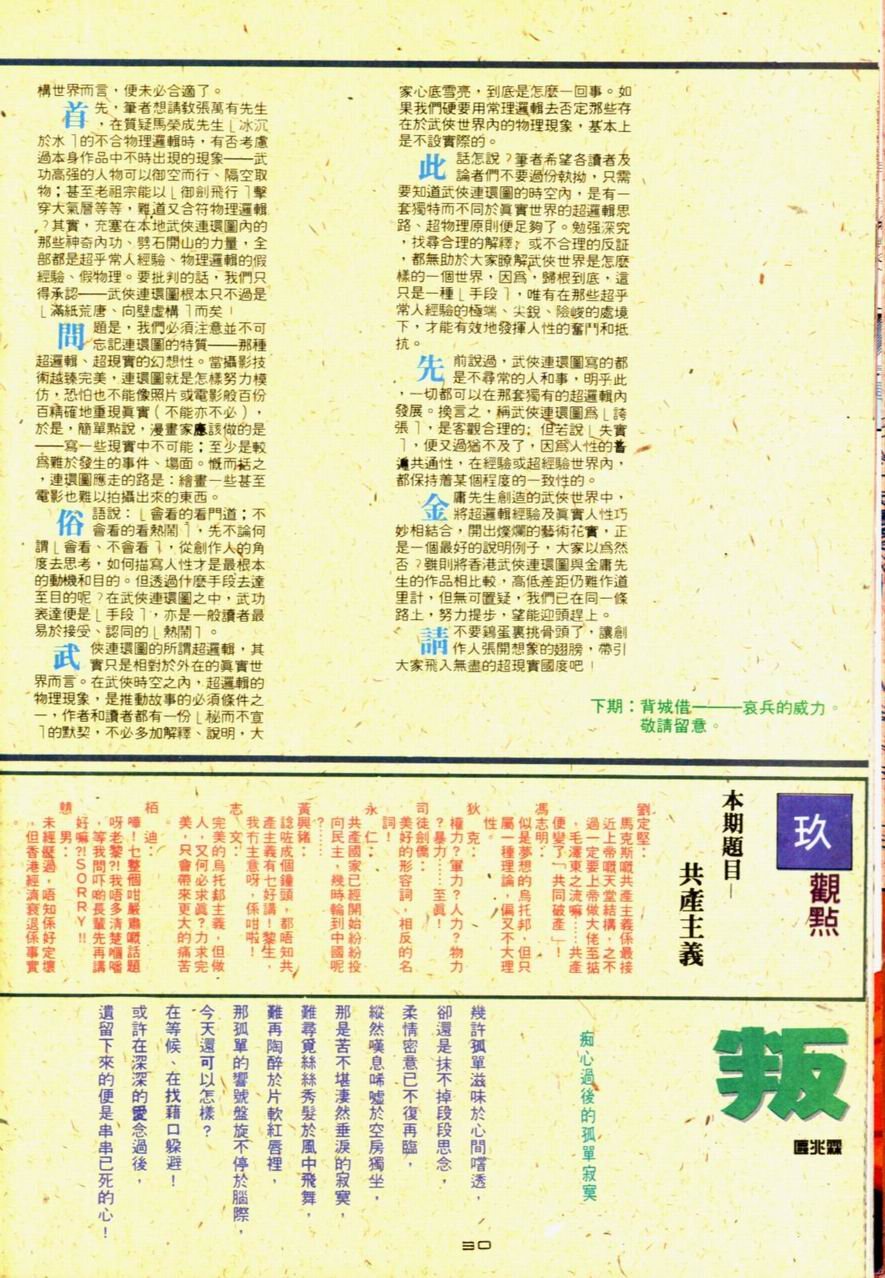 構世界而言，便未必合適了。
首先，筆者想請敎張萬有先生
，在質疑馬榮成先生﹂冰沉
於水﹁的不合物理邏輯時，有否考慮
過本身作品中不時出現的現象——武
功高强的人物可以御空而行、隔空取
物；甚至老祖宗能以﹂御劍飛行﹁擊
穿大氣層等等，難道又合符物理邏輯
？其實，充塞在本地武俠連環圖內的
那些神奇內功、劈石開山的力量，全
部都是超乎常人經驗、物理邏輯的假
經驗、假物理。要批判的話，我們只
得承認——武俠連環圖根本只不過是
﹂滿紙荒唐、向壁虛構﹁而矣！
問題是，我們必須注意並不可
忘記連環圖的特質——那種
超邏輯、超現實的幻想性。當攝影技
術越臻完美，連環圖就是怎樣努力模
仿，恐怕也不能像照片或電影般百份
百精確地重現真實（不能亦不必），
於是，簡單點說，漫畫家應該做的是
——寫一些現實中不可能；至少是較
爲難於發生的事件、場面。慨而括之
，連環圖應走的路是：繪畫一些甚至
電影也難以拍攝出來的東西。
俗語說：﹂會看的看門道；不
會看的看熱鬧﹁，先不論何
謂﹂會看、不會看﹁，從創作人的角
度去思考，如何描寫人性才是最根本
的動機和目的。但透過什麼手段去達
至目的呢？在武俠連環圖之中，武功
表達便是﹂手段﹁，亦是一般讀者最
易於接受、認同的﹂熱鬧﹁。
武俠連環圖的所謂超邏輯，其
實只是相對於外在的眞實世
界而言。在武俠時空之內，超邏輯的
物理現象，是推動故事的必須條件之
一，作者和讀者都有一份﹂秘而不宣
﹁的默契，不必多加解釋、說明，大
家心底雪亮，到底是怎麼一回事。如
果我們硬要用常理邏輯去否定那些存
在於武俠世界內的物理現象，基本上
是不設實際的。
此話怎說？筆者希望各讀者及
論者們不要過份執拗，只需
要知道武俠連環圖的時空內，是有一
套獨特而不同於眞實世界的超邏輯思
路、超物理原則便足夠了。勉强深究
，找尋合理的解釋；或不合理的反証
，都無助於大家瞭解武俠世界是怎麼
樣的一個世界，因爲，歸根到底，這
只是一種﹂手段﹁，唯有在那些超乎
常人經驗的極端、尖銳、險峻的處境
下，才能有效地發揮人性的奮鬥和抵
抗。
先前說過，武俠連環圖寫的都
是不尋常的人和事，明乎此
，一切都可以在那套獨有的超邏輯內
發展。換言之，稱武俠連環圖爲﹂誇
張﹁，是客觀合理的；但若說﹂失實
﹁，便又過猶不及了，因爲人性的舊
共通性，在經驗或超經驗世界內，
都保持着某個程度的一致性的。
金庸先生創造的武俠世界中，
將超邏輯經驗及眞實人性巧
妙相結合，開出燦爛的藝術花實，正
是一個最好的說明例子，大家以爲然
否？雖則將香港武俠連環圖與金庸先
生的作品相比較，高低差距仍難作道
里計，但無可置疑，我們已在同一條
路上，努力提步，望能迎頭趕上。
請不要鷄蛋裏挑骨頭了，讓創
作人張開想象的翅膀，帶引
大家飛入無盡的超現實國度吧！
下期：背城借一——哀兵的威力。
敬請留意。
玖
觀點
本期題目—
共產主義
劉定堅：
馬克斯嘅共產主義係最接
近上帝嘅天堂結構，之不
過一定要上帝做大佬至掂
，毛澤東之流嘛……共產
便變了「共同破產」！
馮志明：
似是夢想的烏托邦，但只
屬一種理論，偏又不大理
性。
狄克：
權力？軍力？人力？物力
？暴力……至眞！
司徒劍僑：
美好的形容詞，相反的名
詞！
永仁：
共產國家已經開始紛紛投
向民主，幾時輪到中國呢
？……
黃興豬：
諗咗成個鐘頭，都唔知共
產主義有乜好講！黎生，
我冇主意呀，係咁啦！
志文：
完美的烏托邦主義，但做
人，又何必求眞？力求完
美，只會帶來更大的痛苦
。
栢迪：
嘩！乜整個咁嚴肅嘅話題
呀老黎？！我唔多清楚嗰噃
，等我問吓啲長輩先再講
好嘛？！SORRY!!
戇男：
未經驗過，唔知係好定壞
，但香港經濟衰退係事實
。
叛
區兆霖
痴心過後的孤單寂寞
幾許孤單滋味於心間嚐透，
卻還是抹不掉段段思念，
柔情密意已不復再臨，
縱然嘆息唏噓於空房獨坐，
那是苦不堪淒然垂淚的寂寞，
難尋覓絲絲秀髮於風中飛舞，
難再陶醉於片軟紅唇裡，
那孤單的響號盤旋不停於腦際，
今天還可以怎樣？
在等候、在找藉口躲避！
或許在深深的愛念過後，
遺留下來的便是串串已死的心！
30